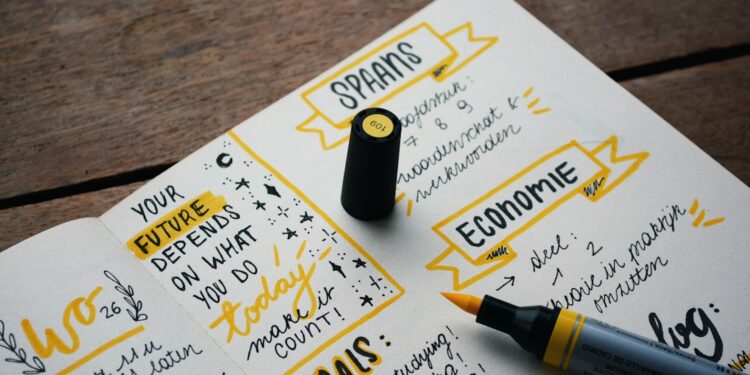 Wo 26
YOUR
FUTURE
DEPENDS
ON WHAT
YOU DO
today
make it
COUNT!
SPAANS
hoofdstuk:
7 8 9
woordenschat &
werkwoorden
ECONOMIE
→ deel:
1 2
theorie in praktijk
omzetten
109
studying!